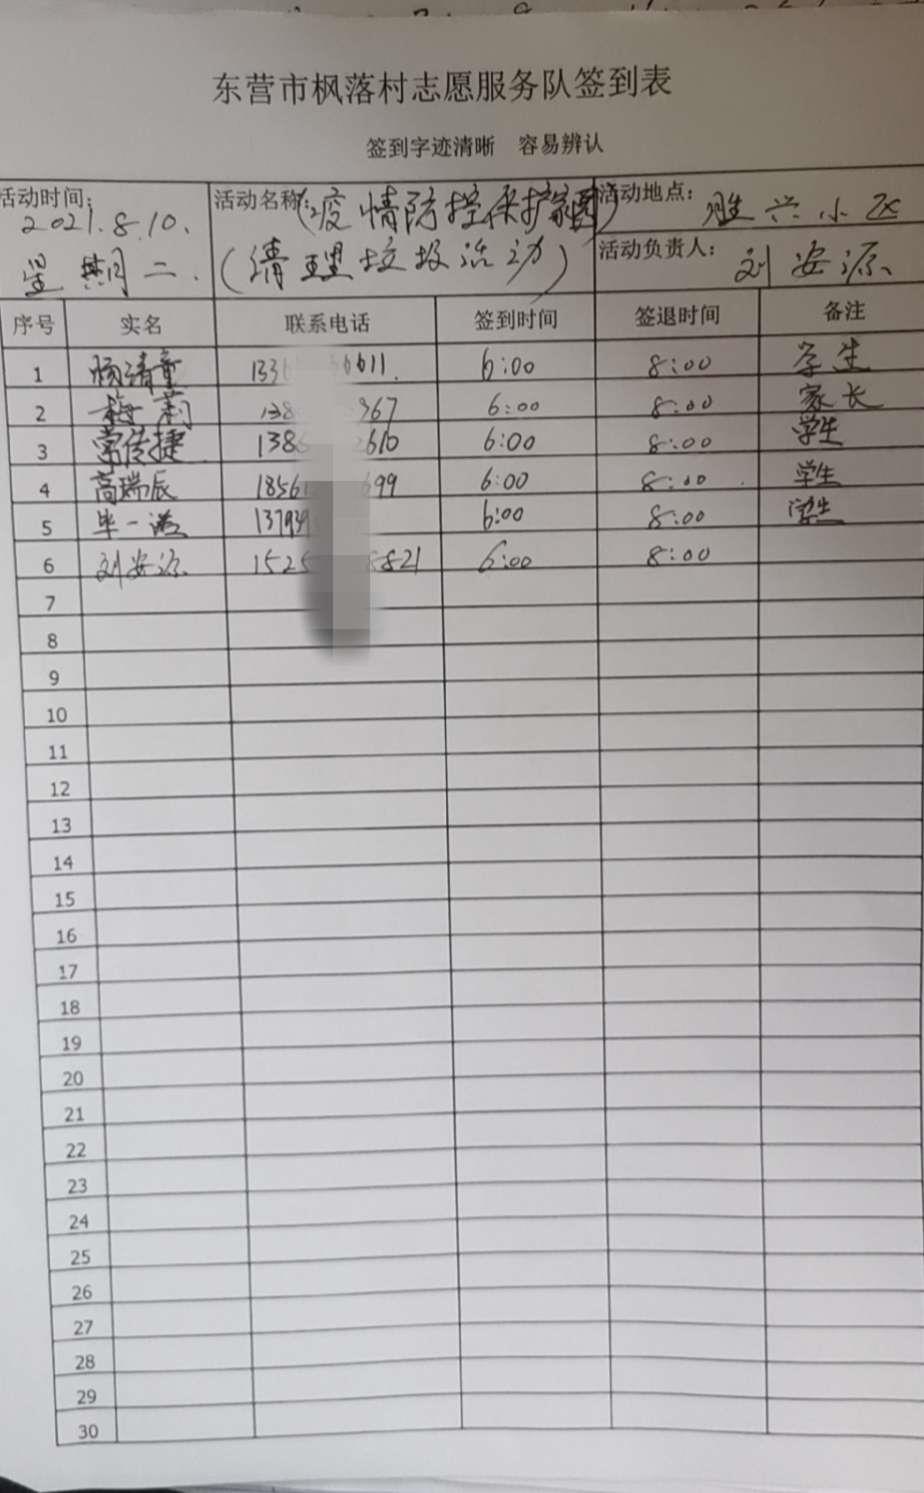 东营市枫落村志愿服务队签到表
签到字迹清晰 容易辨认
活动时间: 2021.8.10. 星期二.
活动名称: (疫情防控保护家园) (清理垃圾活动)
活动地点: 胜兴小区
活动负责人: 刘安源
序号 实名 联系电话 签到时间 签退时间 备注
1 杨清童 133 6611. 6:00 8:00 学生
2 梅莉 138 967 6:00 8:00 家长
3 常传捷 1386 2610 6:00 8:00 学生
4 高瑞辰 1856 699 6:00 8:00 学生
5 毕一诺 13793 6:00 8:00 学生
6 刘安源 1525 8821 6:00 8:00
7
8
9
10
11
12
13
14
15
16
17
18
19
20
21
22
23
24
25
26
27
28
29
30